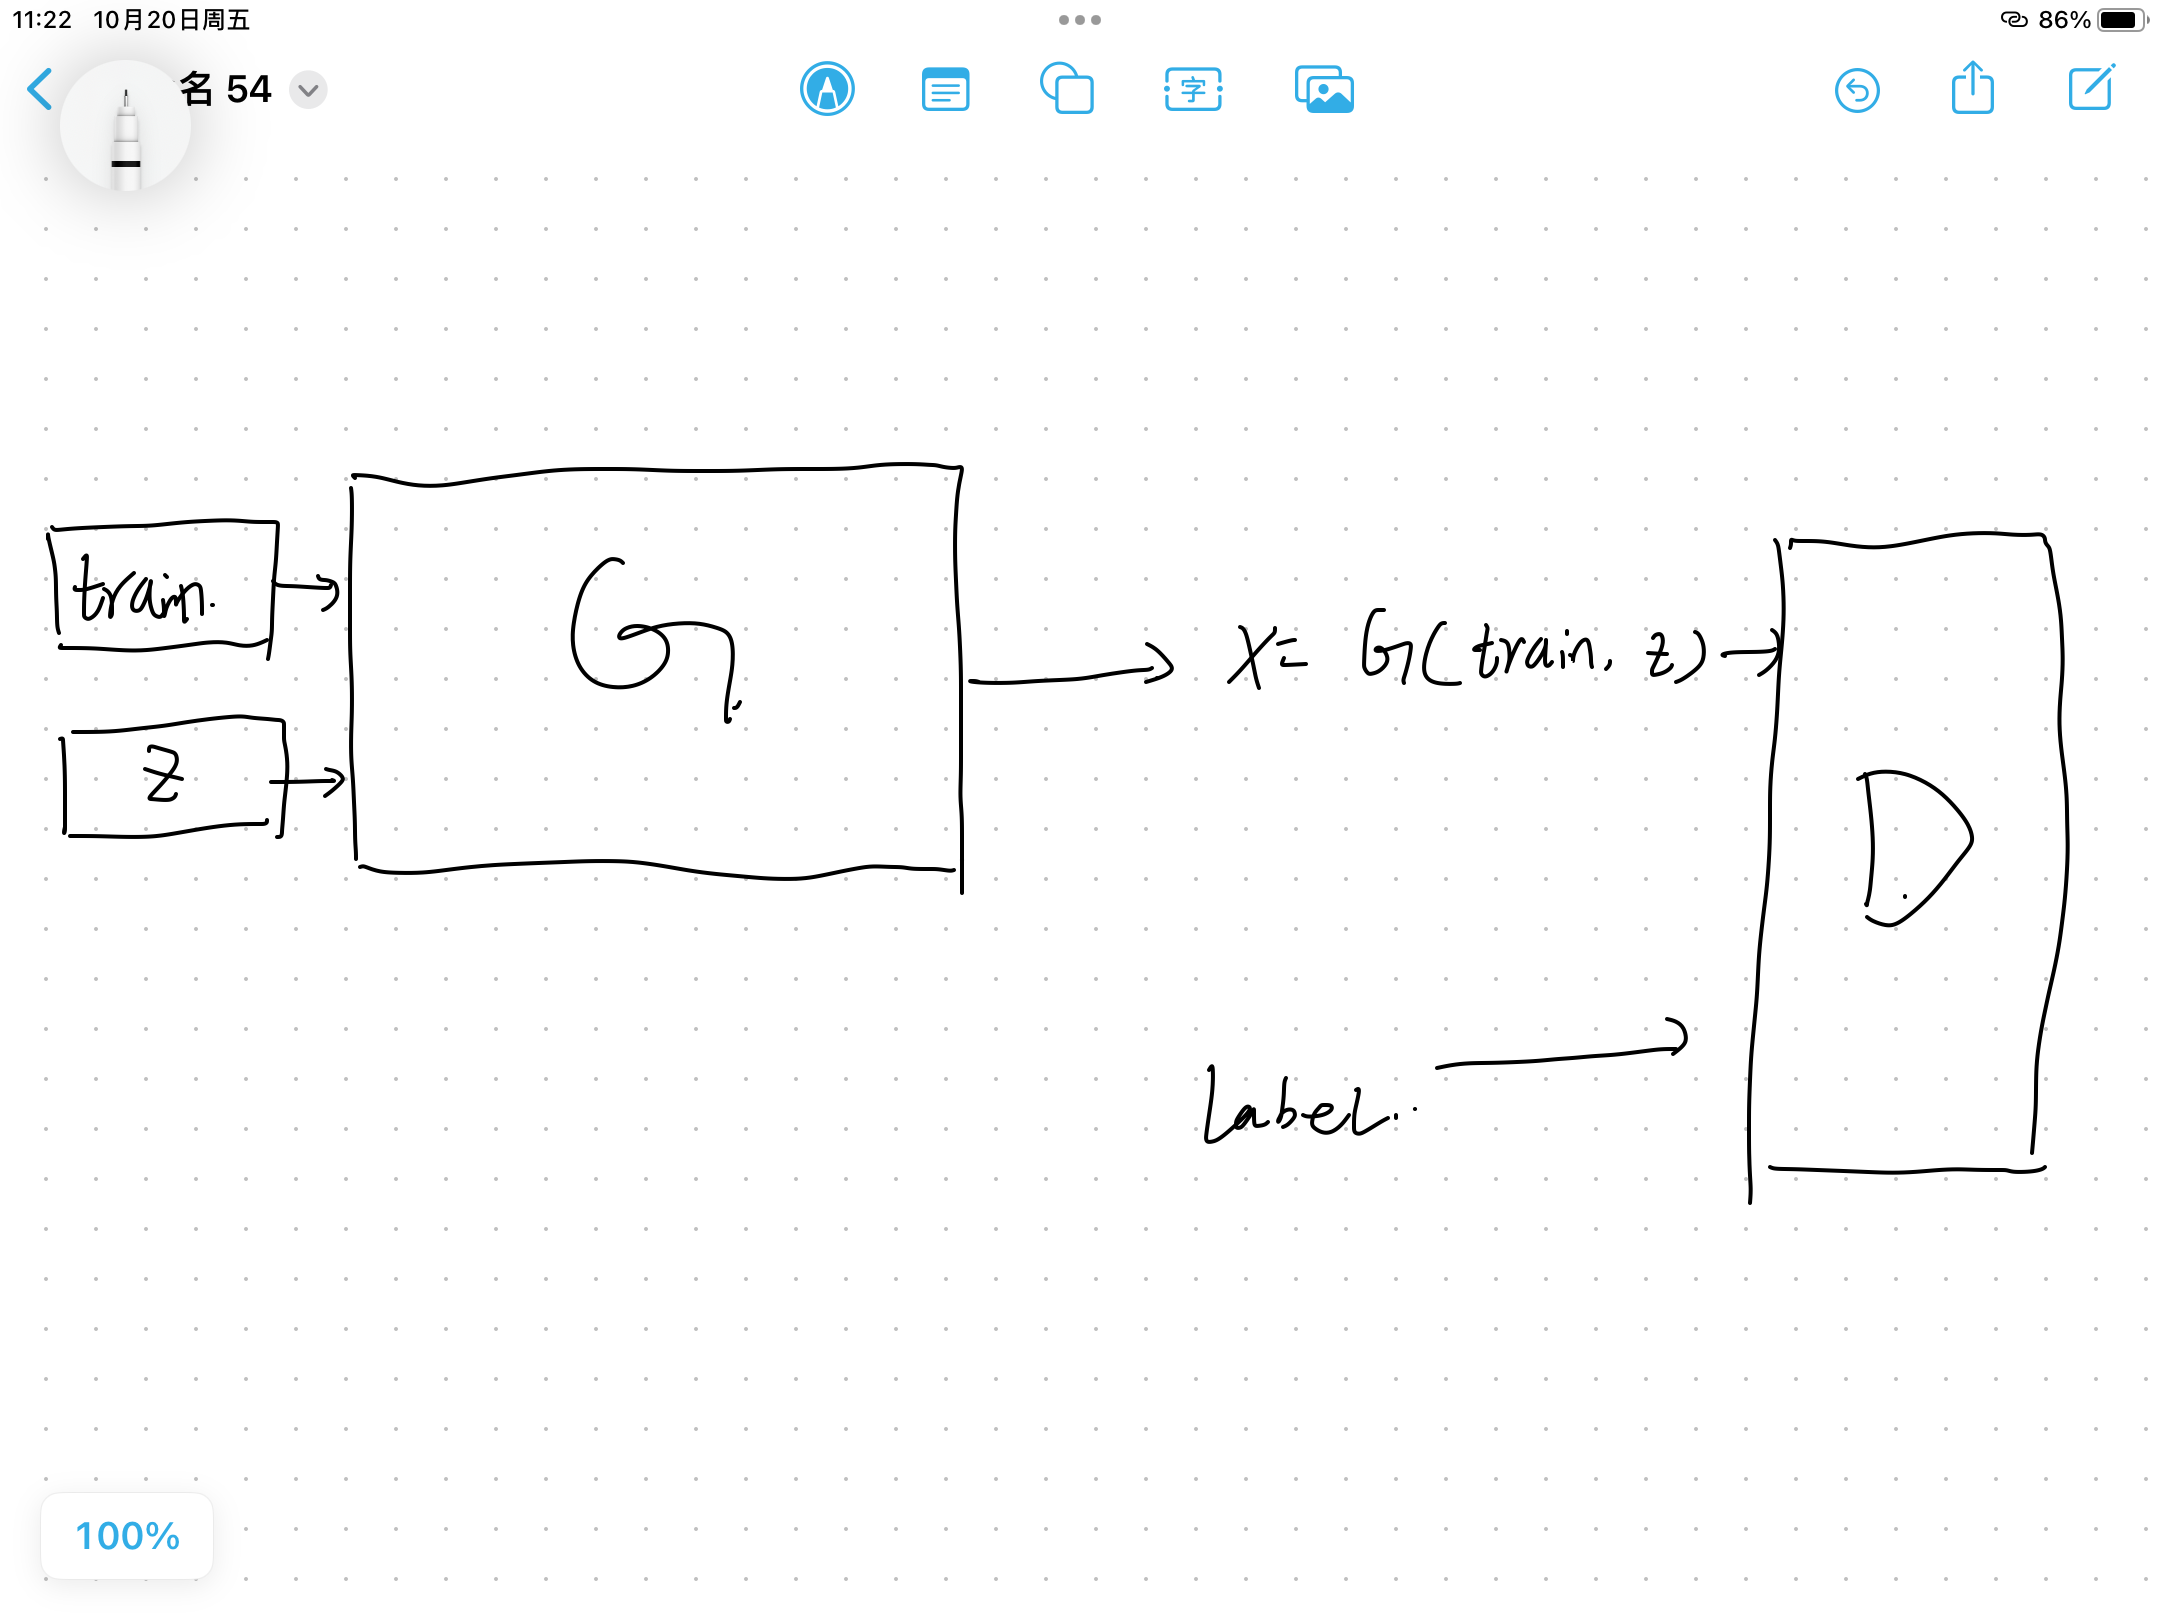 11:22 10月20日周五
86%
名 54
字
train.
G
X= G(train, z)
z
D
Label..
100%